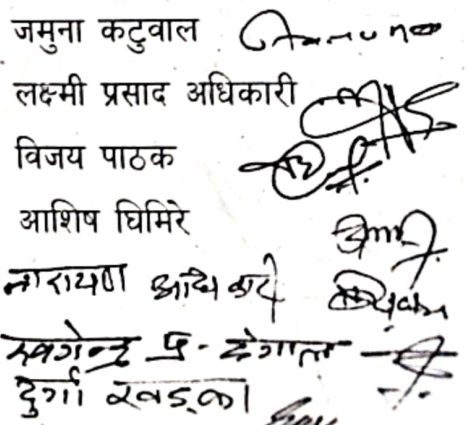 जमुना कटुवाल
लक्ष्मी प्रसाद अधिकारी
विजय पाठक
आशिष घिमिरे
नारायण अधिकारी
खगेन्द्र प्र.
दुर्गा खड्का